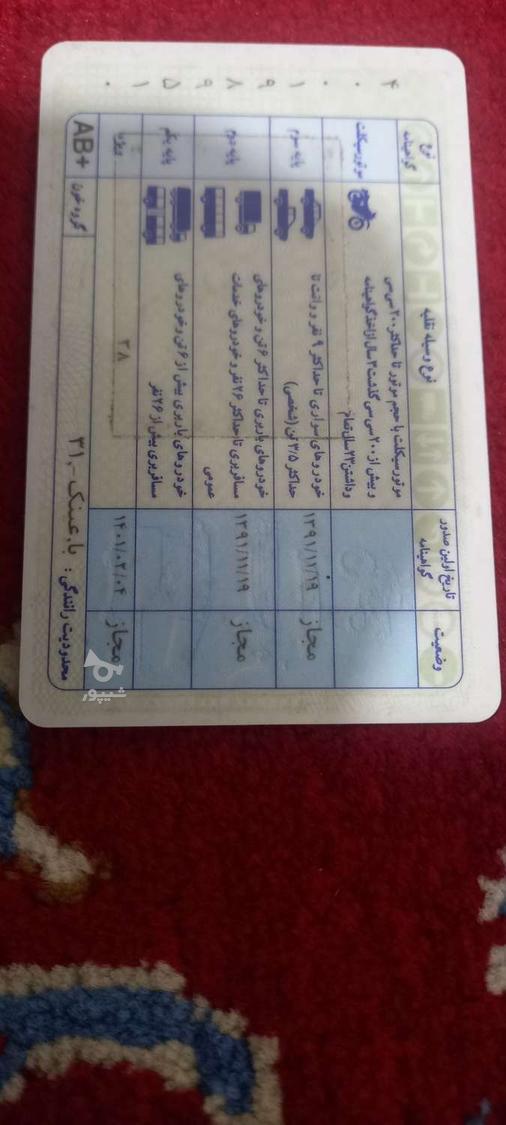 ۴ ۰ ۰ ۱ ۹ ۸ ۹ ۵ ۱ ۰
نوع گواهینامه نوع وسیله نقلیه تاریخ اولین صدور گواهینامه وضعیت
موتورسیکلت موتورسیکلت با حجم موتور تا حداکثر ۲۰۰ سی سی
و بیش از ۲۰۰ سی سی گذشت ۳ سال از اخذ گواهینامه
و داشتن ۲۳ سال تمام
پایه سوم خودروهای سواری تا حداکثر ۹ نفر و وانت تا
حداکثر ۳/۵ تن (شخصی) ۱۳۹۱/۱۱/۱۹ مجاز
پایه دوم خودروهای باربری تا حداکثر ۶ تن و خودروهای
مسافربری تا حداکثر ۲۶ نفر و خودروهای خدمات
عمومی ۱۳۹۱/۱۱/۱۹ مجاز
پایه یکم خودروهای باربری بیش از ۶ تن و خودروهای
مسافربری بیش از ۲۶ نفر
ویژه ۳۸ ۱۴۰۱/۰۲/۰۴ مجاز
گروه خون AB+ محدودیت رانندگی : با.عینک-۳۱
شیپور